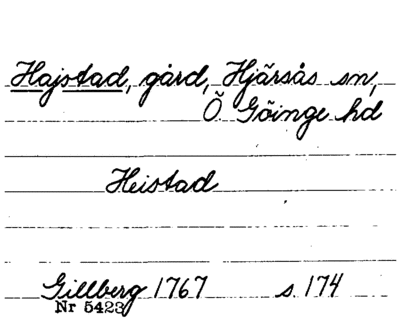 Hajstad, gård, Hjärsås sn,
Ö Göinge hd
Heistad
Gillberg 1767 s. 174
Nr 5423